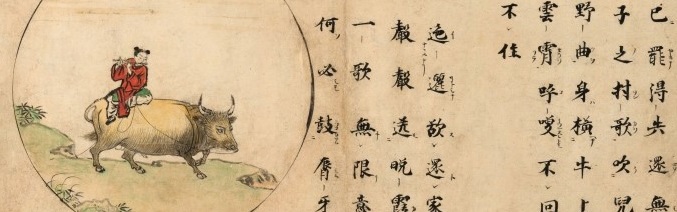 已罷得失還無
子之村歌吹兒
野曲身橫牛上
雲霄呼喚不回
不住
迤邐欲還家
聲聲送晚霞
一歌無限意
何必鼓脣牙